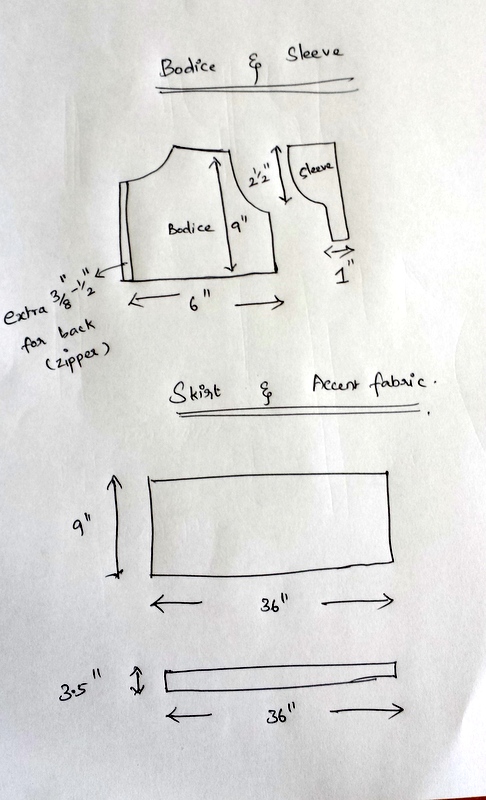 Bodice & Sleeve
2½"
Sleeve
Bodice
9"
1"
extra 3/8"-1/2"
for back
(zipper)
6"
Skirt & Accent fabric.
9"
36"
3.5"
36"